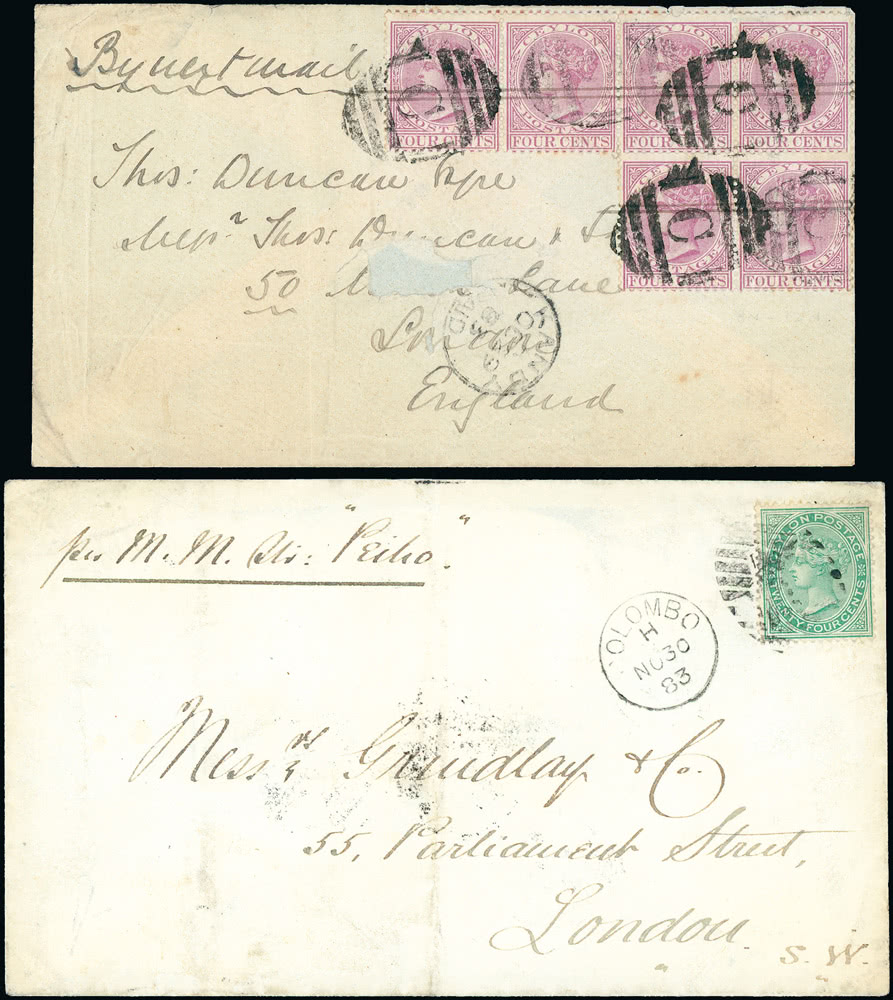 By next mail
CEYLON
POSTAGE
FOUR CENTS
CEYLON
POSTAGE
FOUR CENTS
CEYLON
POSTAGE
FOUR CENTS
CEYLON
POSTAGE
FOUR CENTS
C
C
C
CEYLON
POSTAGE
FOUR CENTS
CEYLON
POSTAGE
FOUR CENTS
Thos: Duncan
Messrs Thos: Duncan &
50 Lane
London
England
KANDY
PAID
per M. M. Str: "Peiho"
CEYLON POSTAGE
TWENTY FOUR CENTS
COLOMBO
H
NO 30
83
Messrs Grindlay & Co.
55, Parliament Street,
London
S. W.